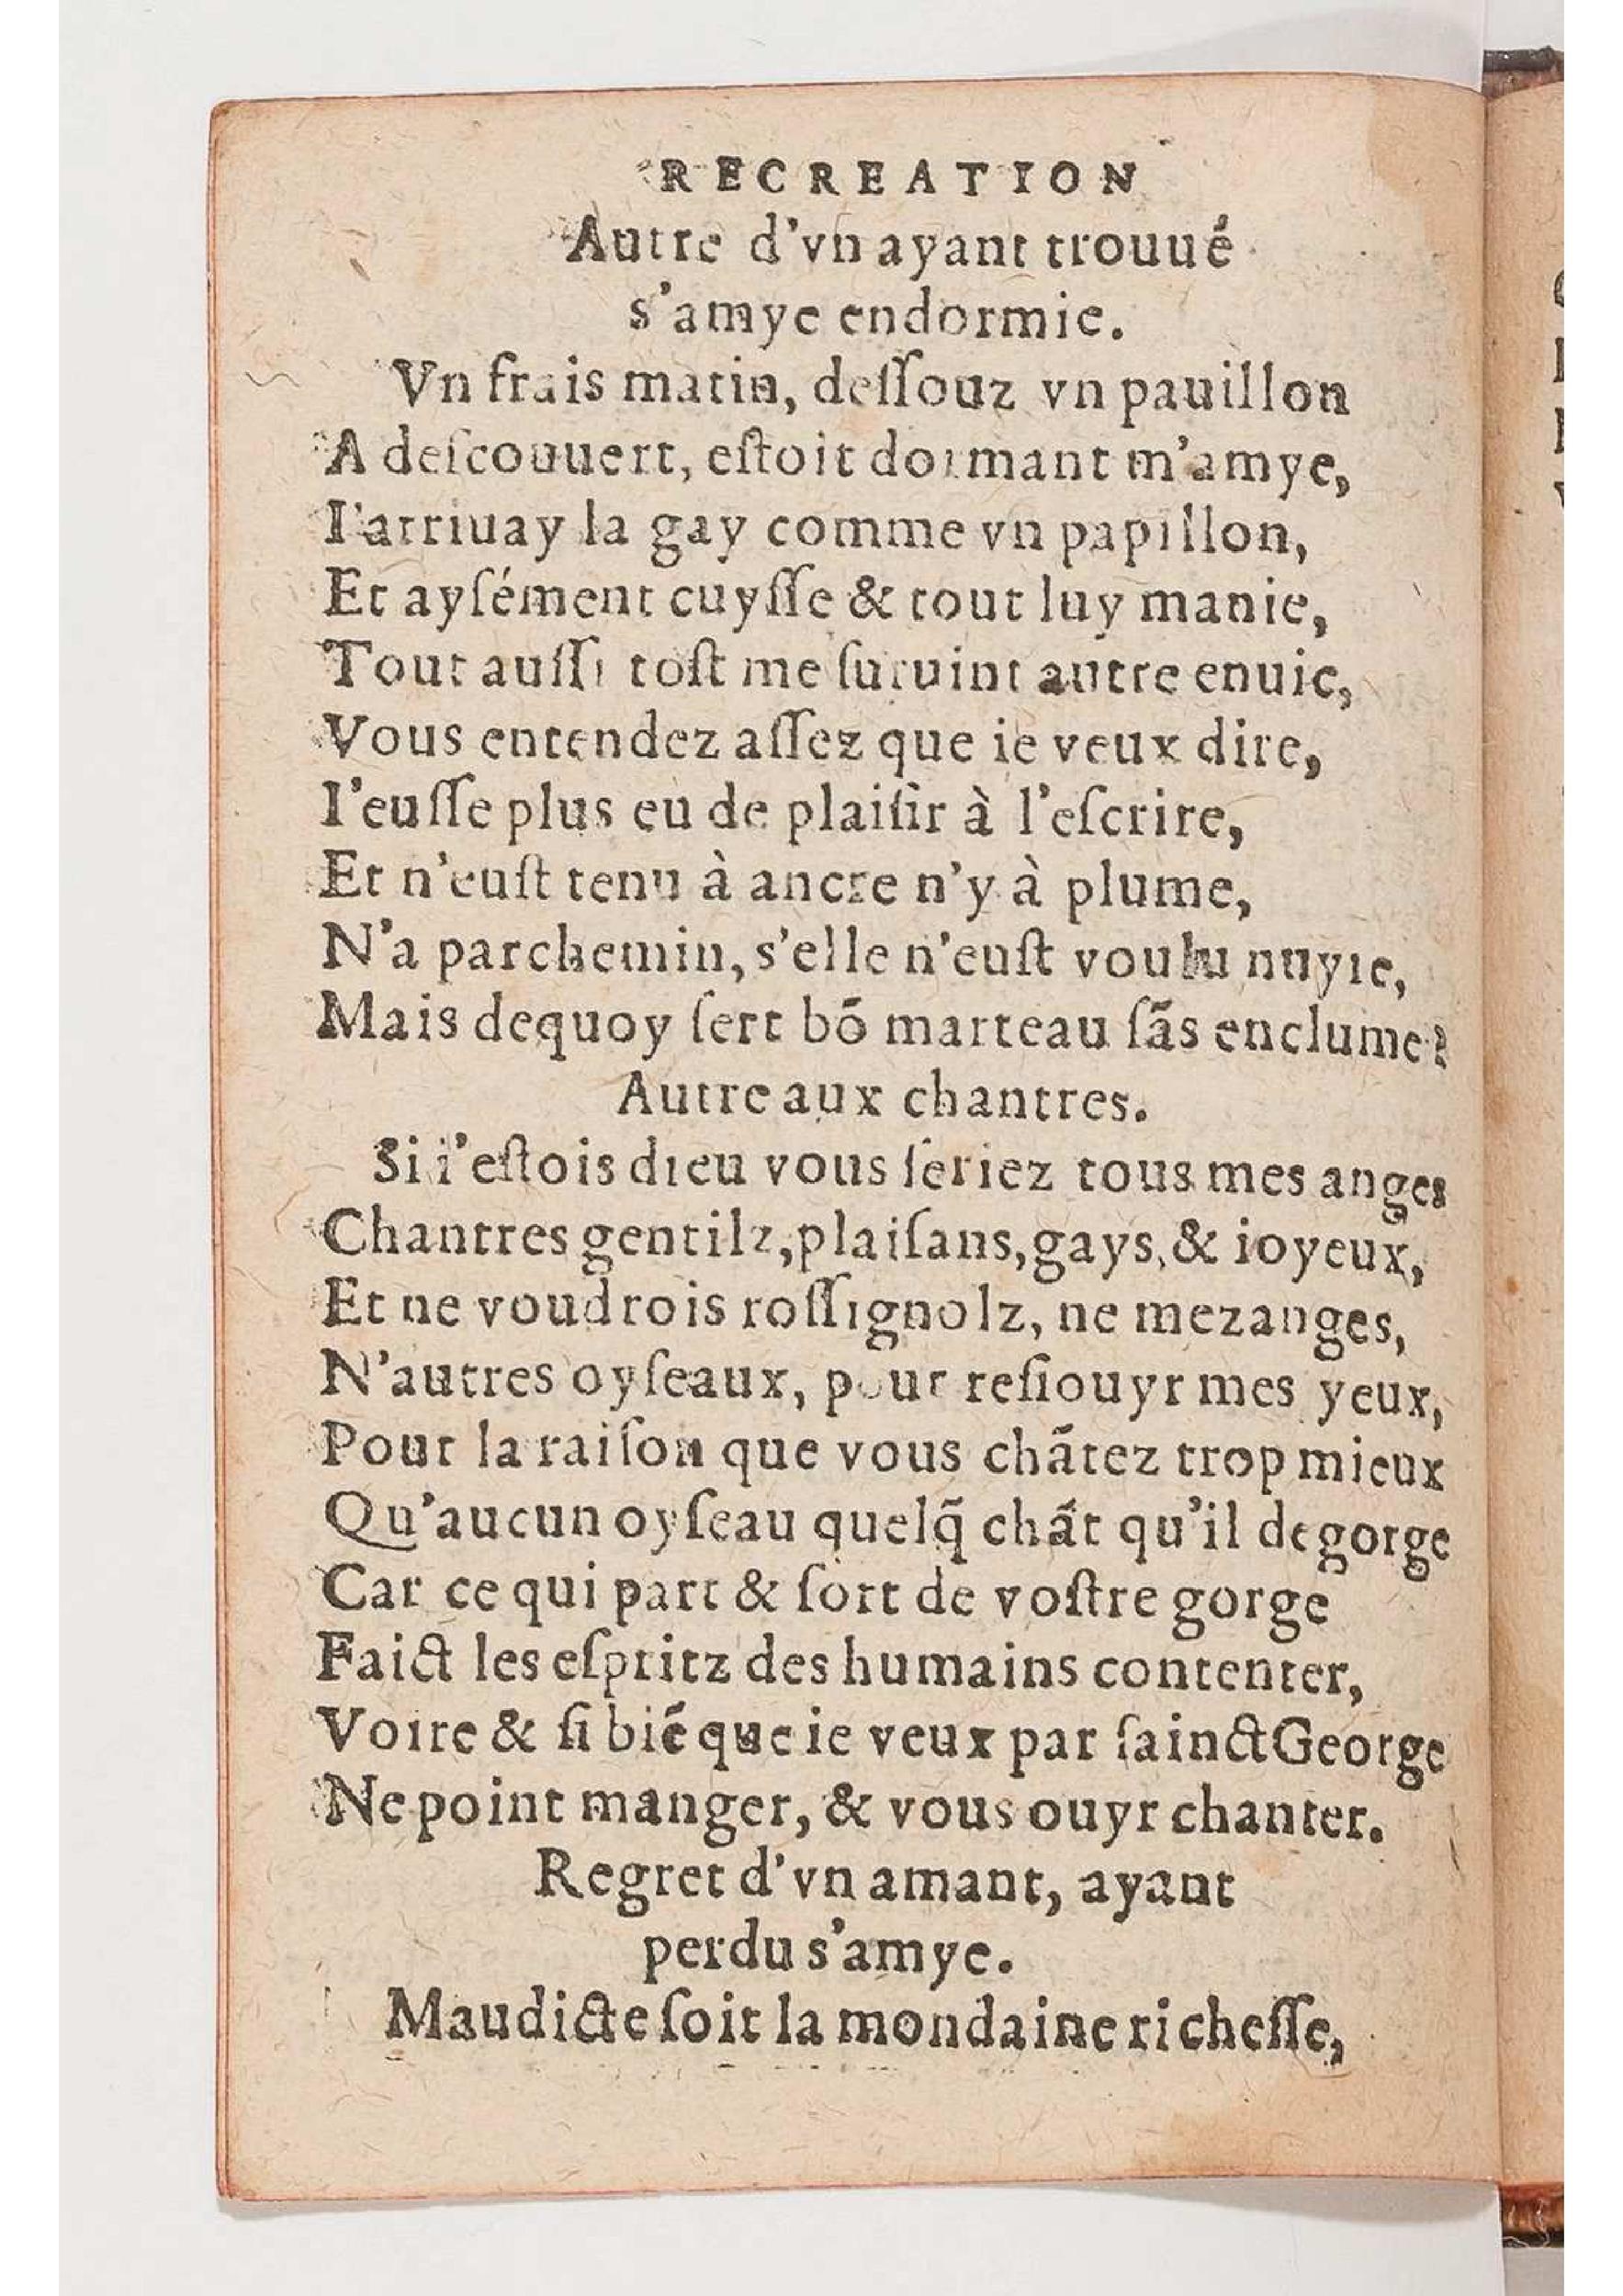 RECREATION
Autre d'vn ayant trouué
s'amye endormie.
Vn frais matin, deſſouz vn pauillon
A deſcouuert, eſtoit dormant m'amye,
I'arriuay la gay comme vn papillon,
Et ayſément cuyſſe & tout luy manie,
Tout auſſi toſt me ſuruint autre enuie,
Vous entendez aſſez que ie veux dire,
I'euſſe plus eu de plaiſir à l'eſcrire,
Et n'euſt tenu à ancre n'y à plume,
N'a parchemin, s'elle n'euſt voulu nuyre,
Mais dequoy ſert bõ marteau ſãs enclume?
Autre aux chantres.
Si i'eſtois dieu vous ſeriez tous mes anges
Chantres gentilz, plaiſans, gays, & ioyeux,
Et ne voudrois roſſignolz, ne mezanges,
N'autres oyſeaux, pour reſiouyr mes yeux,
Pour la raiſon que vous chãtez trop mieux
Qu'aucun oyſeau quelq̃ chãt qu'il degorge
Car ce qui part & ſort de voſtre gorge
Faict les eſpritz des humains contenter,
Voire & ſi biẽ que ie veux par ſainct George
Ne point manger, & vous ouyr chanter.
Regret d'vn amant, ayant
perdu s'amye.
Maudicte ſoit la mondaine richeſſe,